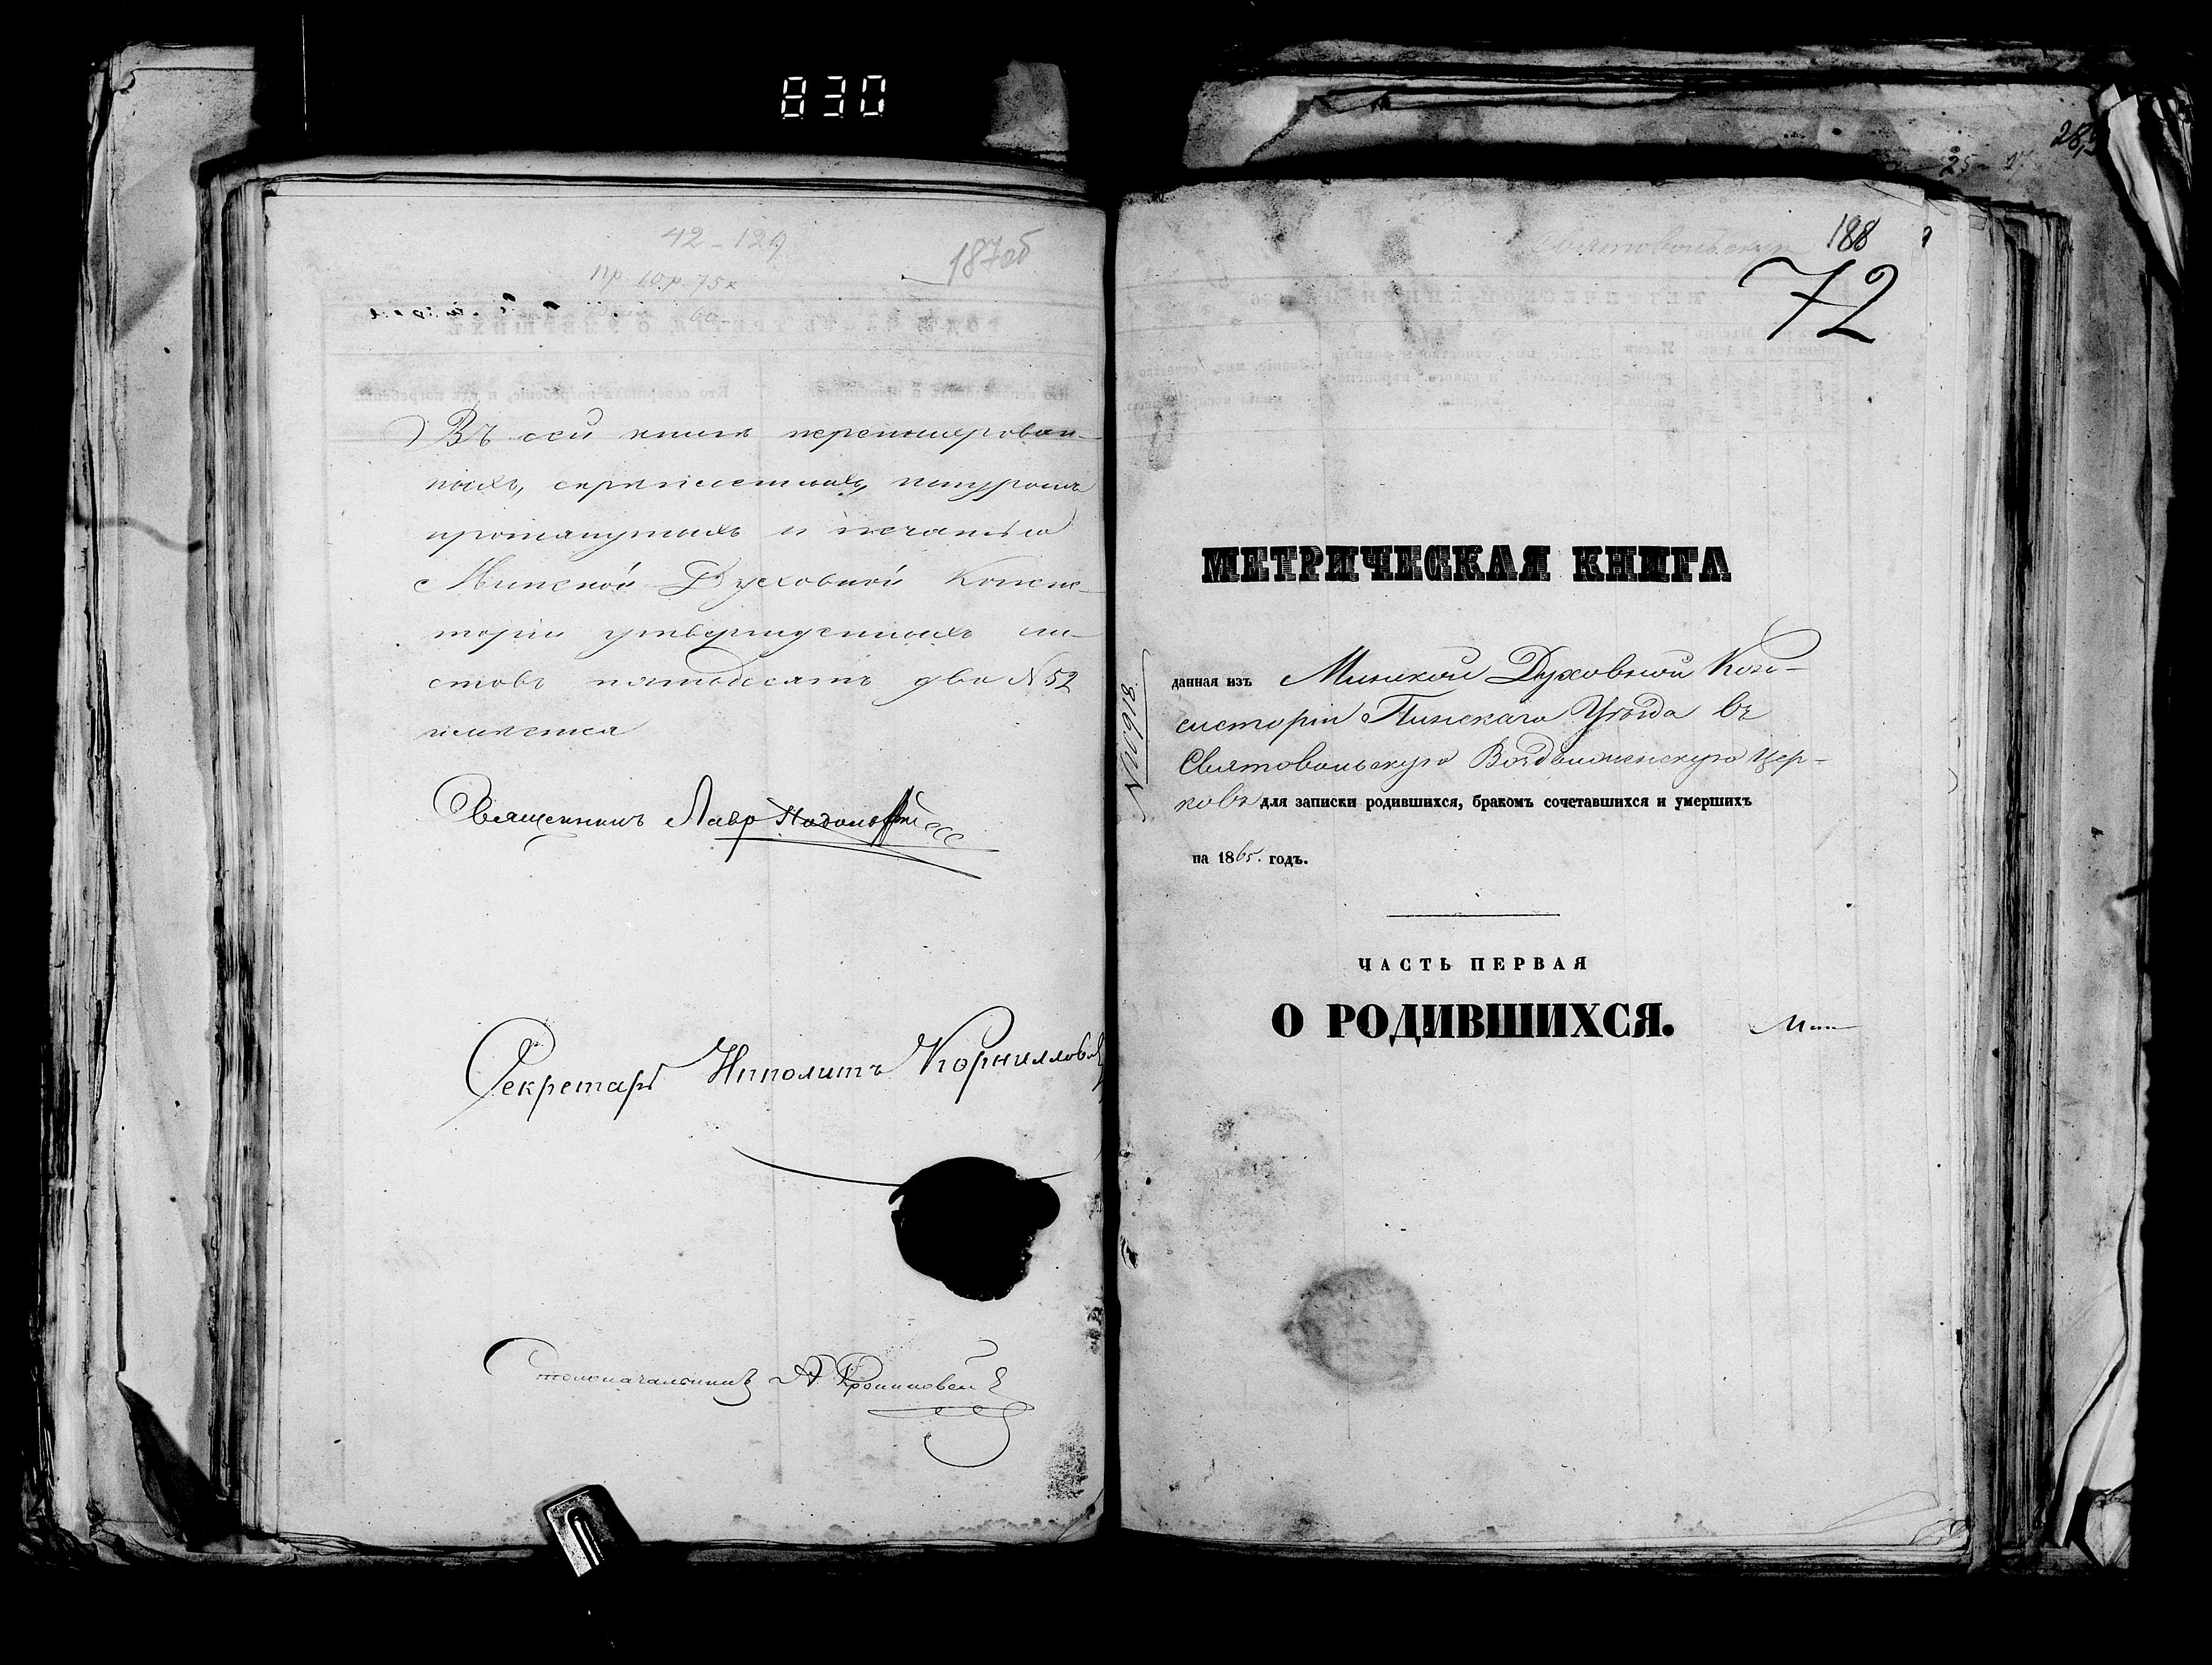 830
42-129
187об
пр. 10 р. 75 к
60
Въ сей книгѣ перенумерован-
ныхъ, скрѣпленныхъ, шнуромъ
протянутыхъ и печатью
Минской Духовной Конси-
сторіи утвержденныхъ ли-
стовъ пятьдесятъ два N 52
имѣется
Священникъ Лавр
Секретарь Ипполитъ Корниллов
Столоначальникъ А.
28,5
25
Святовольскую
188
72
МЕТРИЧЕСКАЯ КНИГА
N 6918
данная изъ Минской Духовной Кон-
систоріи Пинскаго Уѣзда въ
Святовольскую Воздвиженскую Цер-
ковь для записки родившихся, бракомъ сочетавшихся и умершихъ
на 1865. годъ.
ЧАСТЬ ПЕРВАЯ
О РОДИВШИХСЯ.
Мин